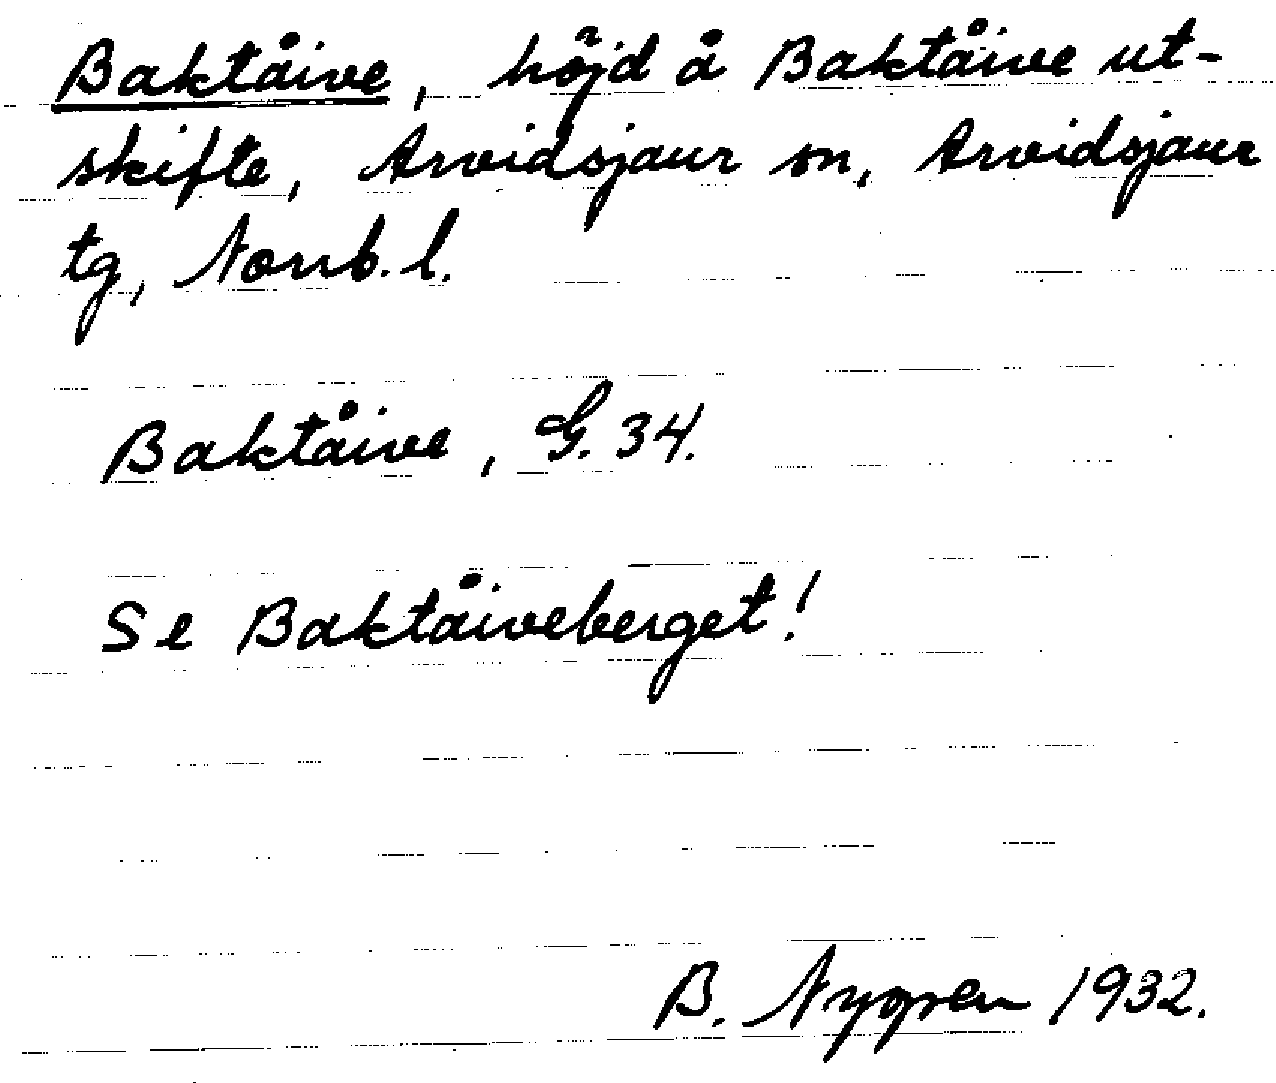 Baktåive, höjd å Baktåive ut-
skifte, Arvidsjaur sn, Arvidsjaur
tg, Norrb. l.
Baktåive, G. 34.
Se Baktåiveberget!
B. Nygren 1932.